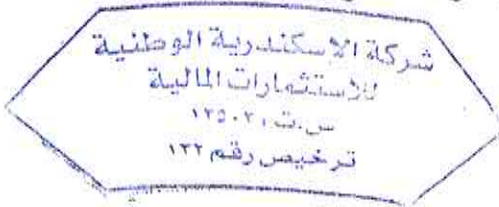 شركة الاسكندرية الوطنية
للاستثمارات المالية
س.ت ١٣٥٠٢١
ترخيص رقم ١٢٢